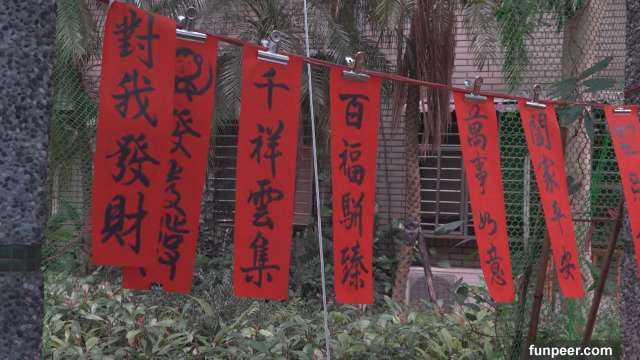 對我發財
千祥雲集
百福駢臻
萬事如意
闔家平安
funpeer.com